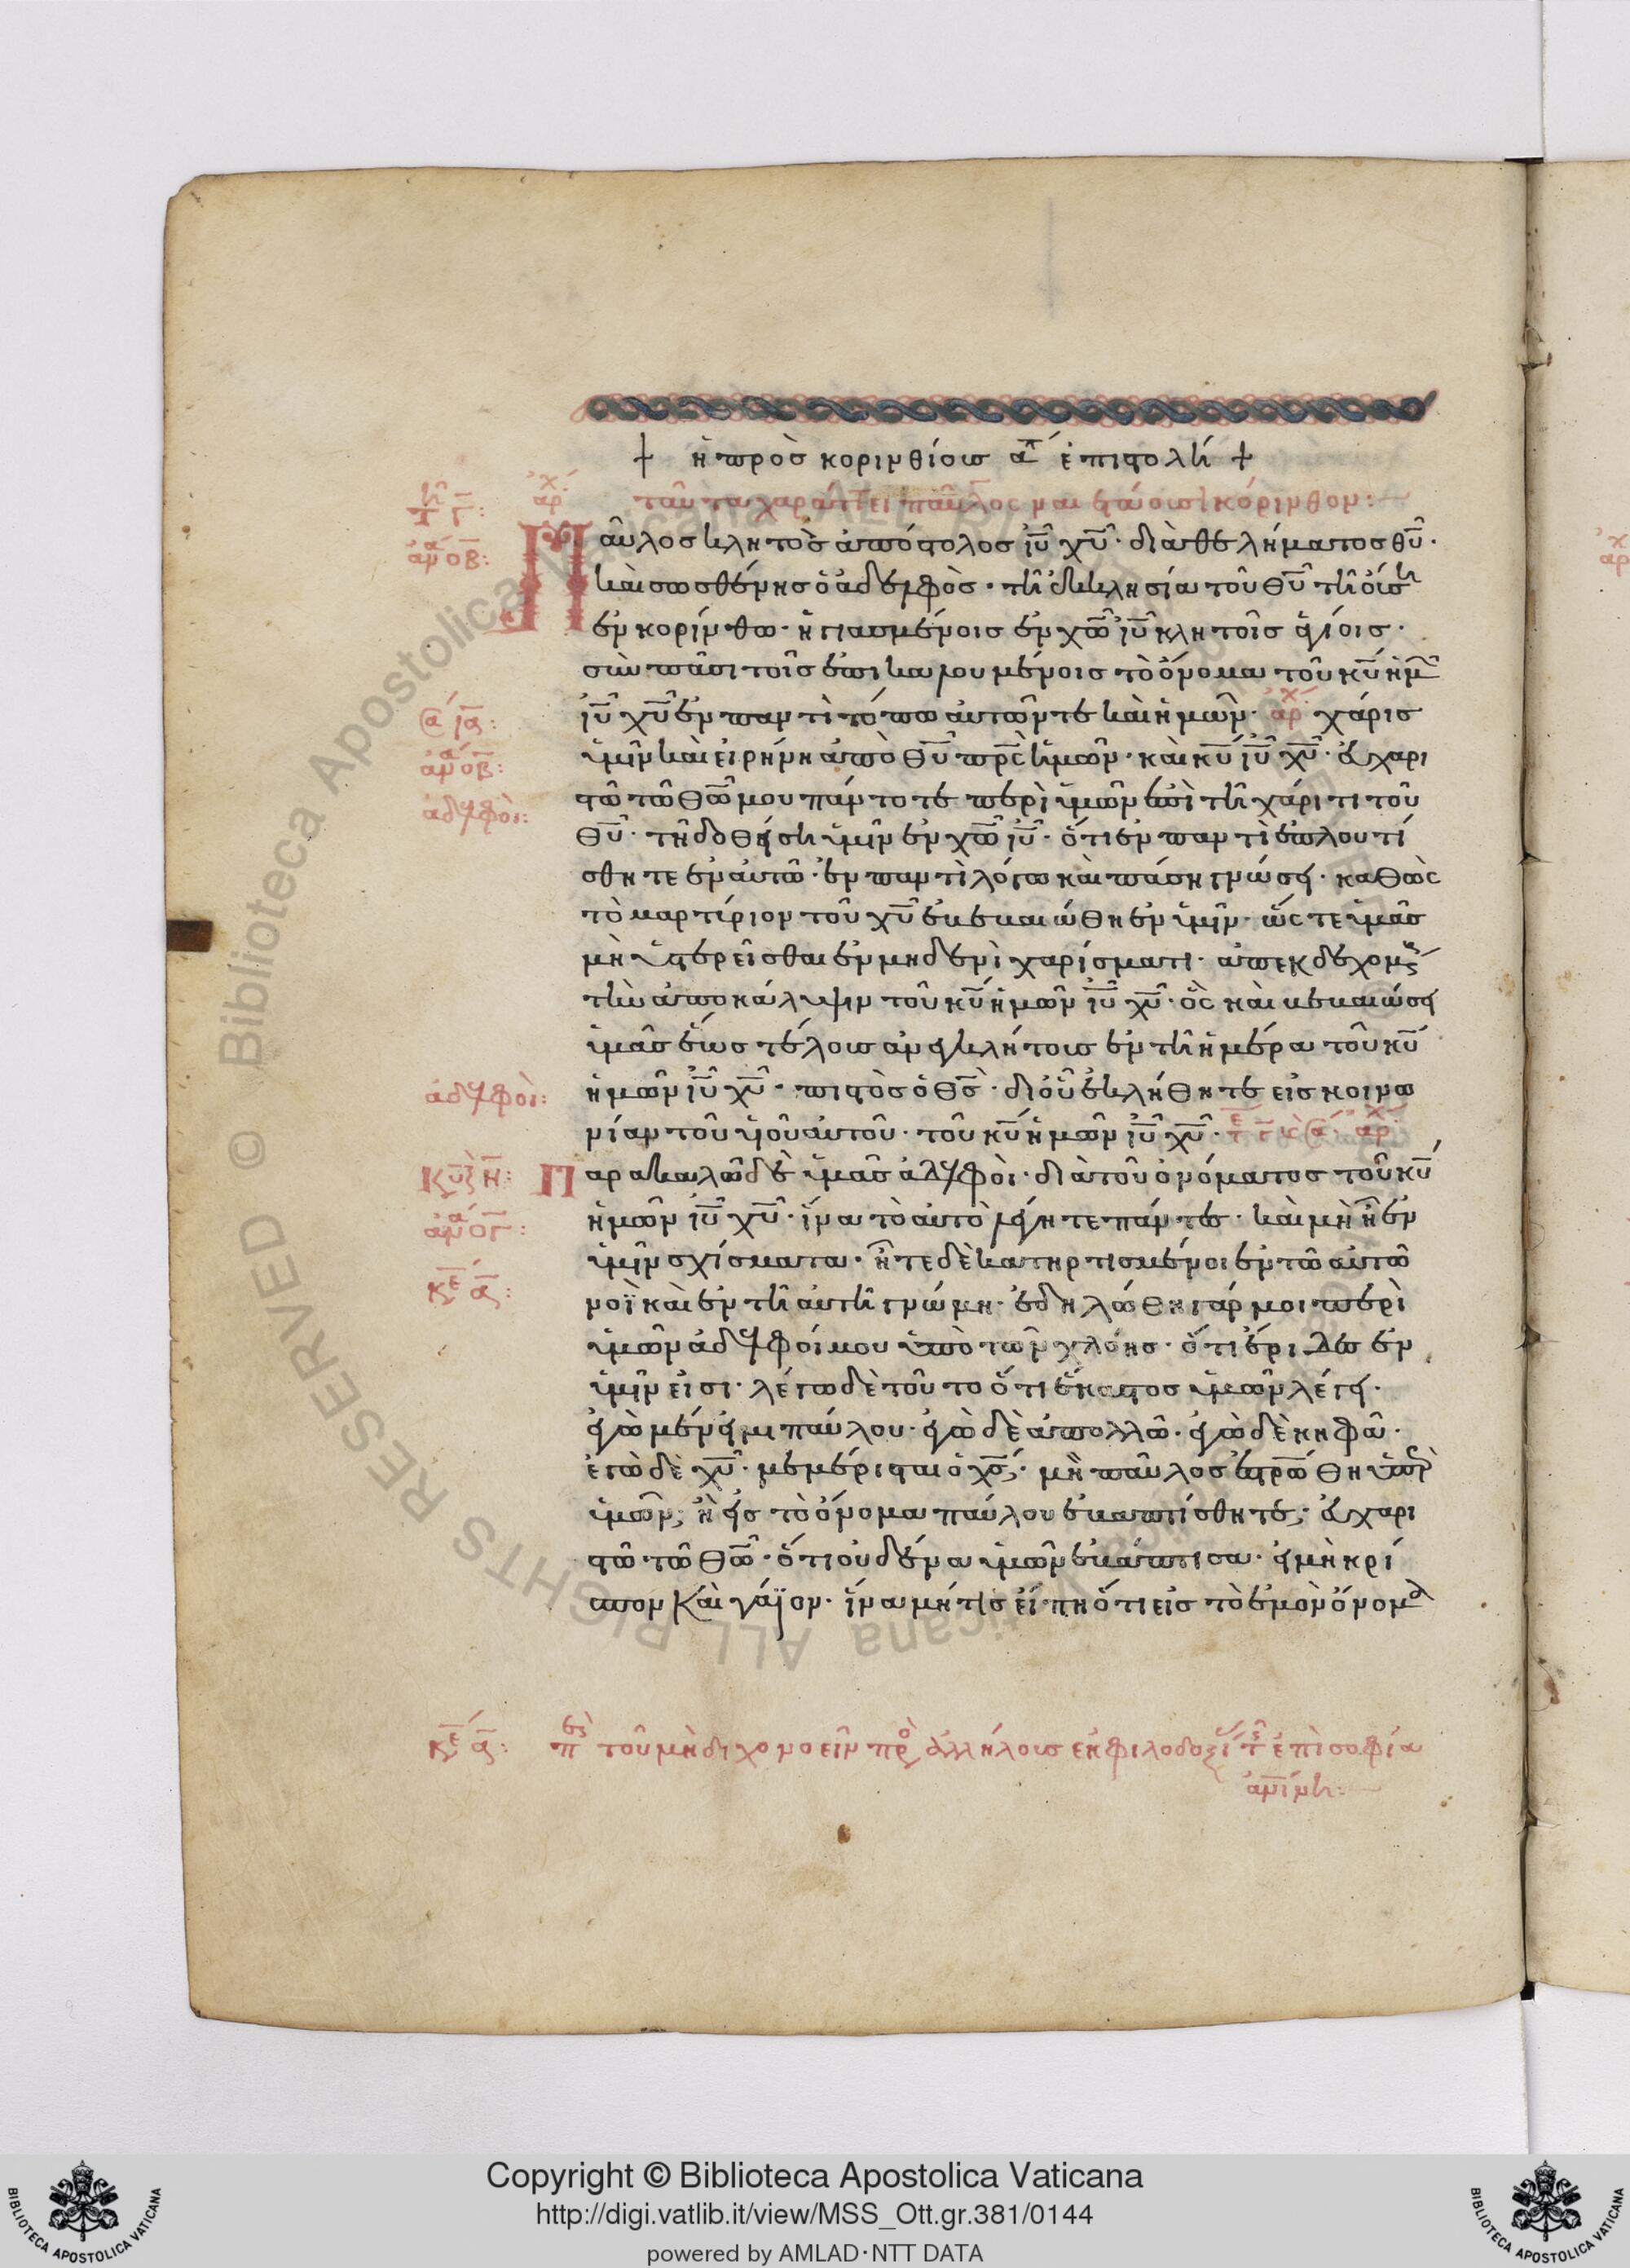 + ἡ πρὸσ κορινθίουσ α´ ἐπιστολὴ +
ταῦτα χαράττει παῦλος
κόρινθον:
Παῦλοσ κλητὸσ ἀπόστολοσ ἰῡ χῡ· διὰ θελήματοσ θῡ·
καὶ σωσθένησ ὁ ἀδελφὸσ· τῆ ἐκκλησία τοῦ θῡ τῆ οὔση
ἐν κορίνθω· ἡγιασμένοισ ἐν χω̄ ἰῡ κλητοῖσ ἁγίοισ·
σὺν πᾶσι τοῖσ ἐπικαλουμένοισ τὸ ὄνομα τοῦ κῡ ἡμ
ἰῡ χῡ ἐν παντὶ τόπω αὐτῶν τε καὶ ἡμῶν· ἀρχ χάρισ
ὑμῖν καὶ εἰρήνη ἀπὸ θῡ πρ̄ς ἡμῶν· καὶ κῡ ἰῡ χῡ· εὐχαρι
στῶ τῶ θω̄ μου πάντοτε περὶ ὑμῶν ἐπὶ τῆ χάριτι τοῦ
θῡ· τῆ δοθείση ὑμῖν ἐν χω̄ ἰῡ· ὅτι ἐν παντὶ ἐπλουτί
σθητε ἐν αὐτῶ· ἐν παντὶ λόγω καὶ πάση γνώσει· καθὼς
τὸ μαρτύριον τοῦ χῡ ἐβεβαιώθη ἐν ὑμῖν· ὥς τε ὑμᾶσ
μὴ ὑστερεῖσθαι ἐν μηδενὶ χαρίσματι· ἀπεκδεχομς
τὴν ἀποκάλυψιν τοῦ κῡ ἡμῶν ἰῡ χῡ· ὃς καὶ βεβαιώσει
ὑμᾶσ ἕωσ τέλουσ ἀνεγκλήτουσ ἐν τῆ ἡμέρα τοῦ κῡ
ἡμῶν ἰῡ χῡ· πιστὸσ ὁ θς̄· δι οὗ ἐκλήθητε εἰσ κοινω
νίαν τοῦ υἱοῦ αὐτοῦ· τοῦ κῡ ἡμῶν ἰῡ χῡ·
Παρακαλῶ δὲ ὑμᾶσ ἀδελφοὶ· διὰ τοῦ ὀνόματοσ τοῦ κῡ
ἡμῶν ἰῡ χῡ· ἵνα τὸ αὐτὸ λέγητε πάντεσ· καὶ μὴ ἦ ἐν
ὑμῖν σχίσματα· ἦτε δὲ κατηρτισμένοι ἐν τῶ αὐτῶ
νοῒ καὶ ἐν τῆ αὐτῆ γνώμη· ἐδηλώθη γάρ μοι περὶ
ὑμῶν ἀδελφοί μου ὑπὸ τῶν χλόησ· ὅτι ἔριδεσ ἐν
ὑμῖν εἰσι· λέγω δὲ τοῦτο ὅτι ἕκαστοσ ὑμῶν λέγει·
ἐγὼ μέν εἰμι παύλου· ἐγὼ δὲ ἀπολλῶ· ἐγὼ δὲ κηφᾶ·
ἐγὼ δὲ χῡ· μεμέρισται ὁ χσ̄; μὴ παῦλοσ ἐστρω̄θη ὑπὲρ
ὑμῶν; ἢ εἰσ τὸ ὄνομα παύλου ἐβαπτίσθητε; εὐχαρι
στῶ τῶ θω̄· ὅτι οὐδένα ὑμῶν ἐβάπτισα· εἰ μὴ κρί
σπον καὶ γάϊον· ἵνα μή τισ εἴπη ὅτι εἰσ τὸ ἐμὸν ὄνομα
ἀδελφοὶ:
ἀδελφοὶ:
τοῦ μὴ διχονοεῖν πρὸ ἀλλήλουσ ἐκ φιλοδοξί
ἐπὶ σοφία
Copyright © Biblioteca Apostolica Vaticana
http://digi.vatlib.it/view/MSS_Ott.gr.381/0144
powered by AMLAD·NTT DATA
BIBLIOTECA APOSTOLICA VATICANA
BIBLIOTECA APOSTOLICA VATICANA